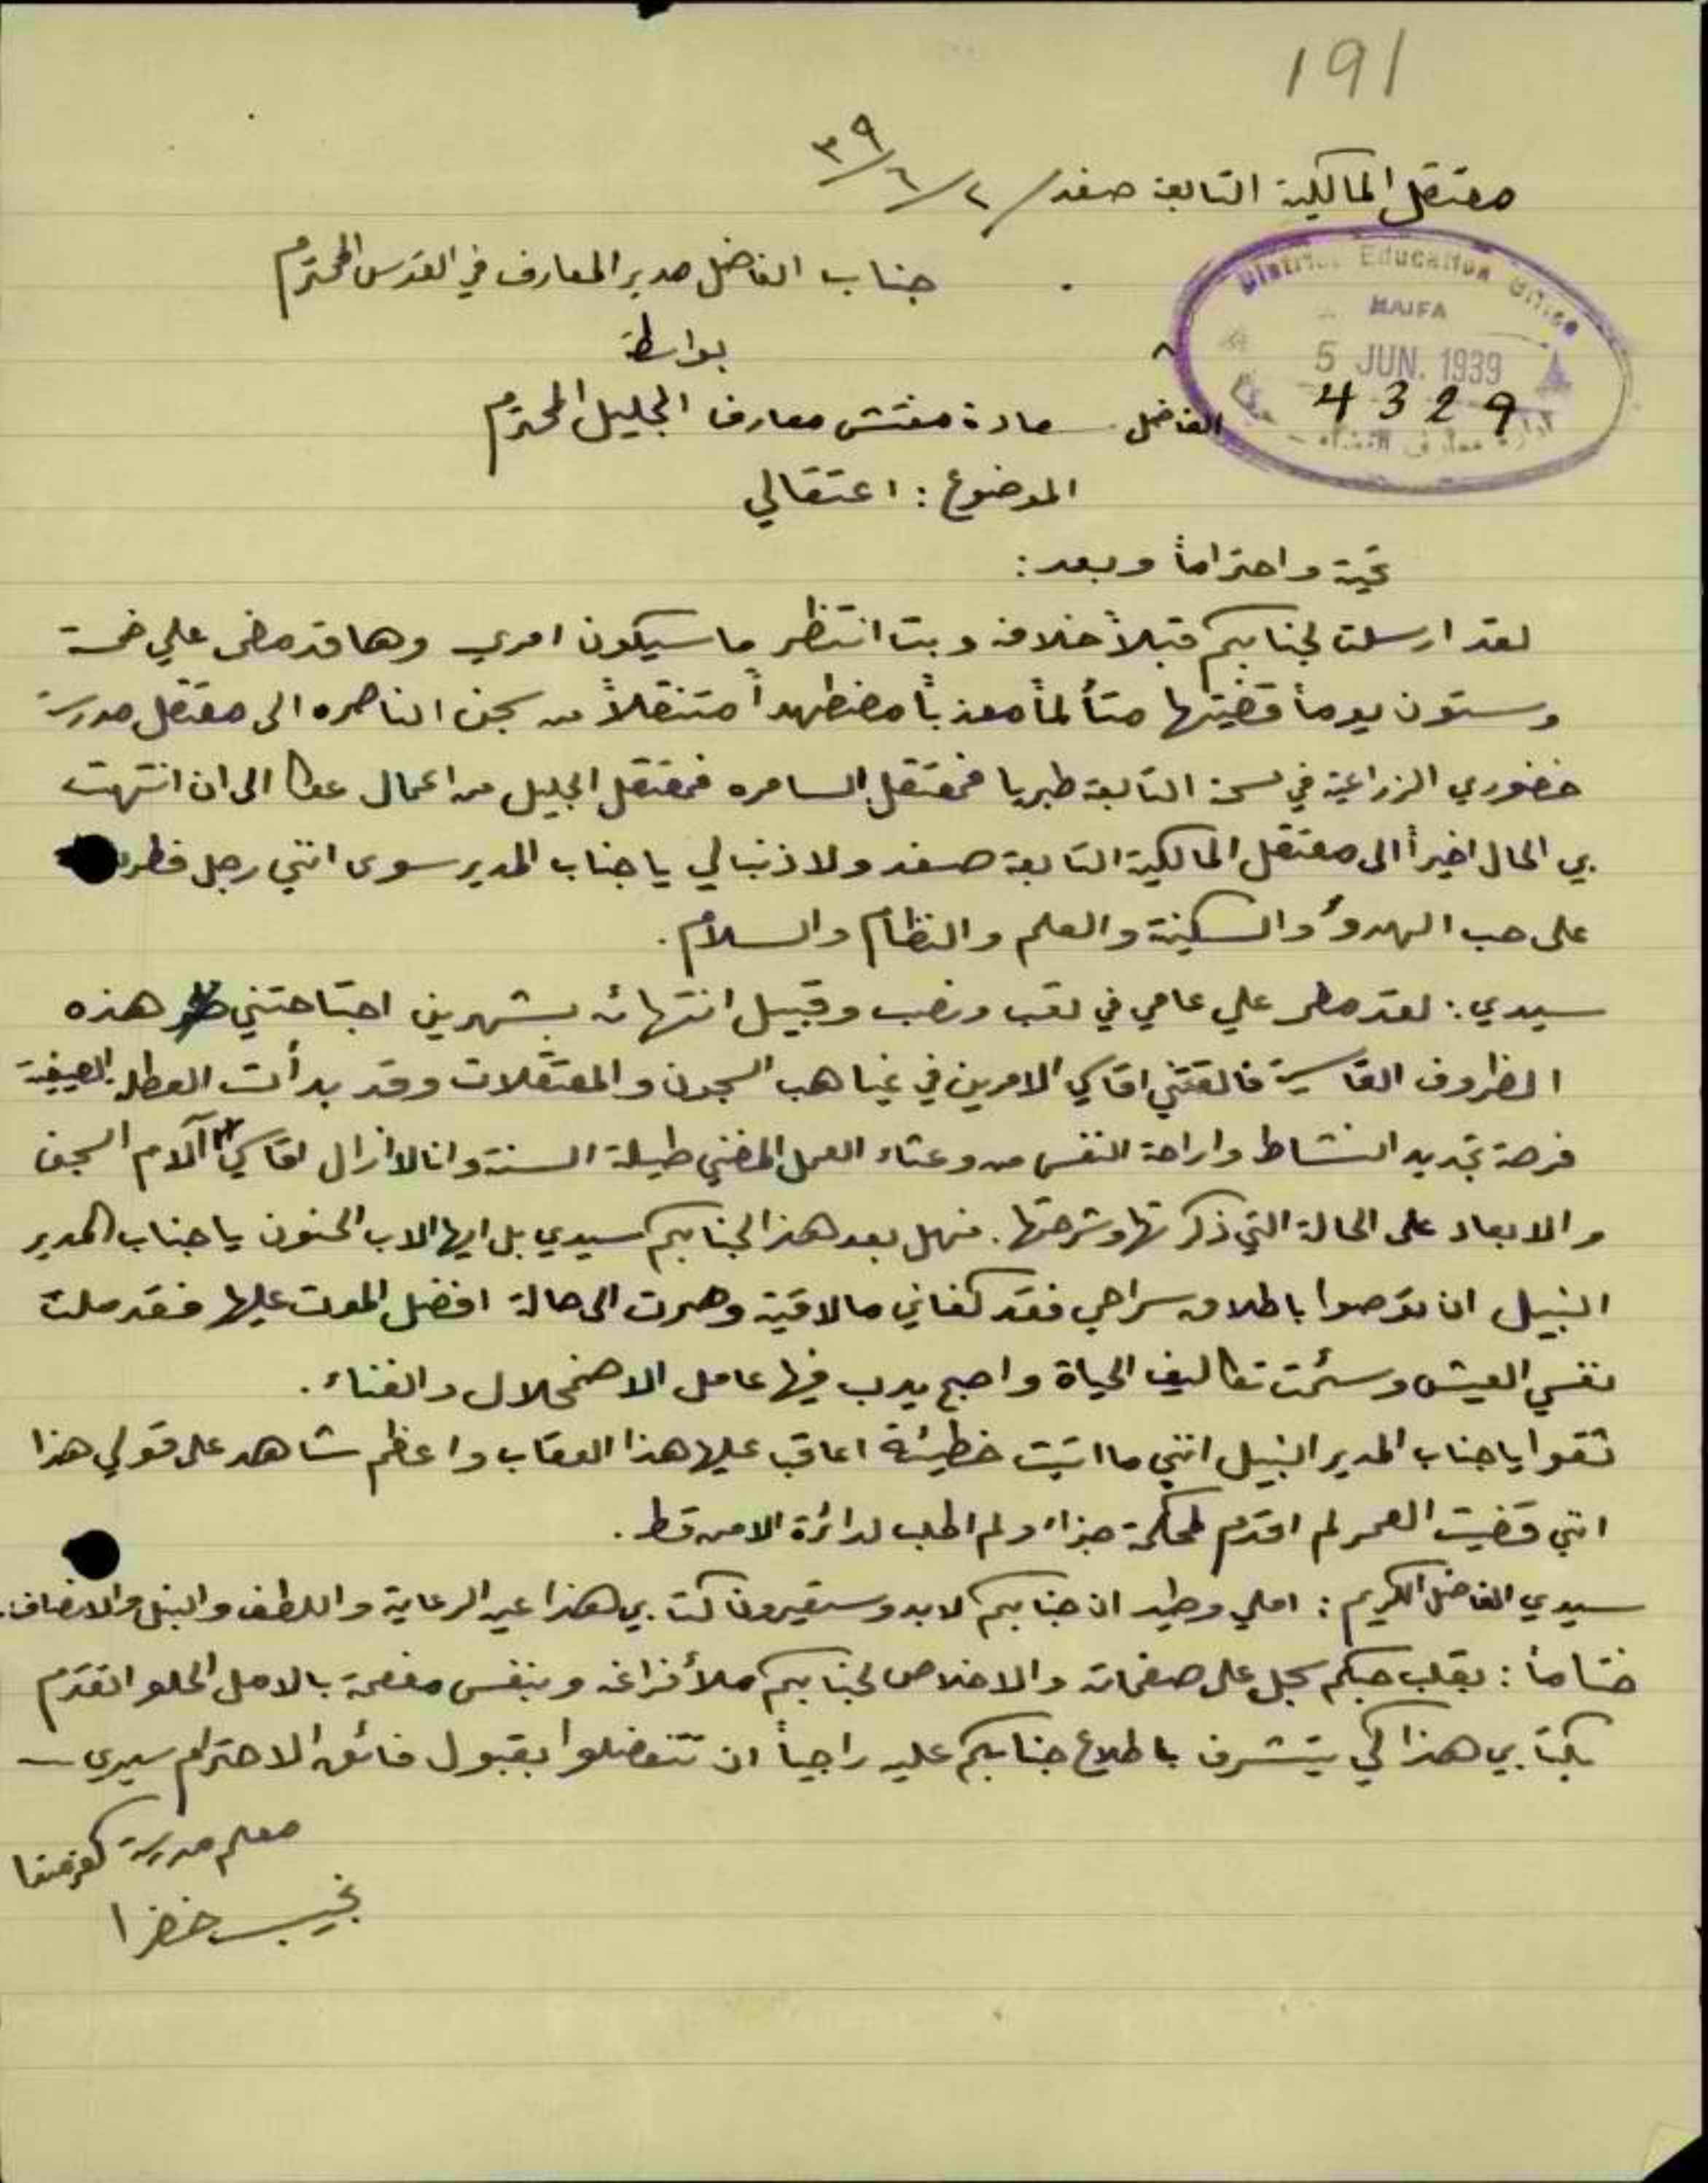 191
معتقل المالكية التابعة صفد / ٢/٦/٣٩
جناب الفاضل مدير المعارف في القدس المحترم
بواسطة
District Education Office
HAIFA
5 JUN. 1939
4329
ادارة معارف
سعادة مفتش معارف الجليل المحترم الفاضل
الموضوع : اعتقالي
تحية واحتراماً وبعد :
لقد ارسلت لجنابكم قبلاً خلافه وبت انتظر ما سيكون امري وها قد مضى علي خمسة
وستون يوماً قضيتها متألماً معذباً مضطهداً متنقلاً من سجن الناصره الى معتقل مدرسة
خضوري الزراعية في سحرة التابعة طبريا فمعتقل السامره فمعتقل الجليل من اعمال عكا الى ان انتهت
بي الحال اخيراً الى معتقل المالكية التابعة صفد ولا ذنب لي يا جناب المدير سوى انني رجل فطرت
على حب الهدؤ والسكينة والعلم والنظام والسلام .
سيدي : لقد مر علي عامي في تعب ونصب وقبيل انتهائه بشهرين اجتاحتني هذه
الظروف القاسية فالقتني اقاسي الامرين في غياهب السجون والمعتقلات وقد بدأت العطلة الصيفية
فرصة تجديد النشاط واراحة النفس من وعثاء العمل المضني طيلة السنة وانا لا ازال اقاسي آلام السجن
والابعاد على الحالة التي ذكرتها وشرحتها . فهل بعد هذا لجنابكم سيدي بل ايها الاب الحنون يا جناب المدير
النبيل ان توصوا باطلاق سراحي فقد كفاني ما لاقيته وصرت الى حالة افضل الموت عليها فقد ملت
نفسي العيش وسئمت تكاليف الحياة واصبح يدب فيها عامل الاضمحلال والفناء .
ثقوا يا جناب المدير النبيل انني ما اتيت خطيئة اعاقب عليها هذا العقاب واعظم شاهد على قولي هذا
انني قضيت العمر لم اقدم لمحكمة جزاء ولم اطلب لدائرة الامن قط .
سيدي الفاضل الكريم : املي وطيد ان جنابكم لا بد وستعيرون كتابي هذا عين الرعاية واللطف والنبل والانصاف .
ختاماً : بقلب حبكم سجل على صفحاته والاخلاص لجنابكم ملأ فراغه وبنفس مفعمة بالامل الحلو اتقدم
بكتابي هذا كي يتشرف باطلاع جنابكم عليه راجياً ان تتفضلوا بقبول فائق الاحترام سيدي
معلم مدرسة كفرمندا
نجيب خضرا